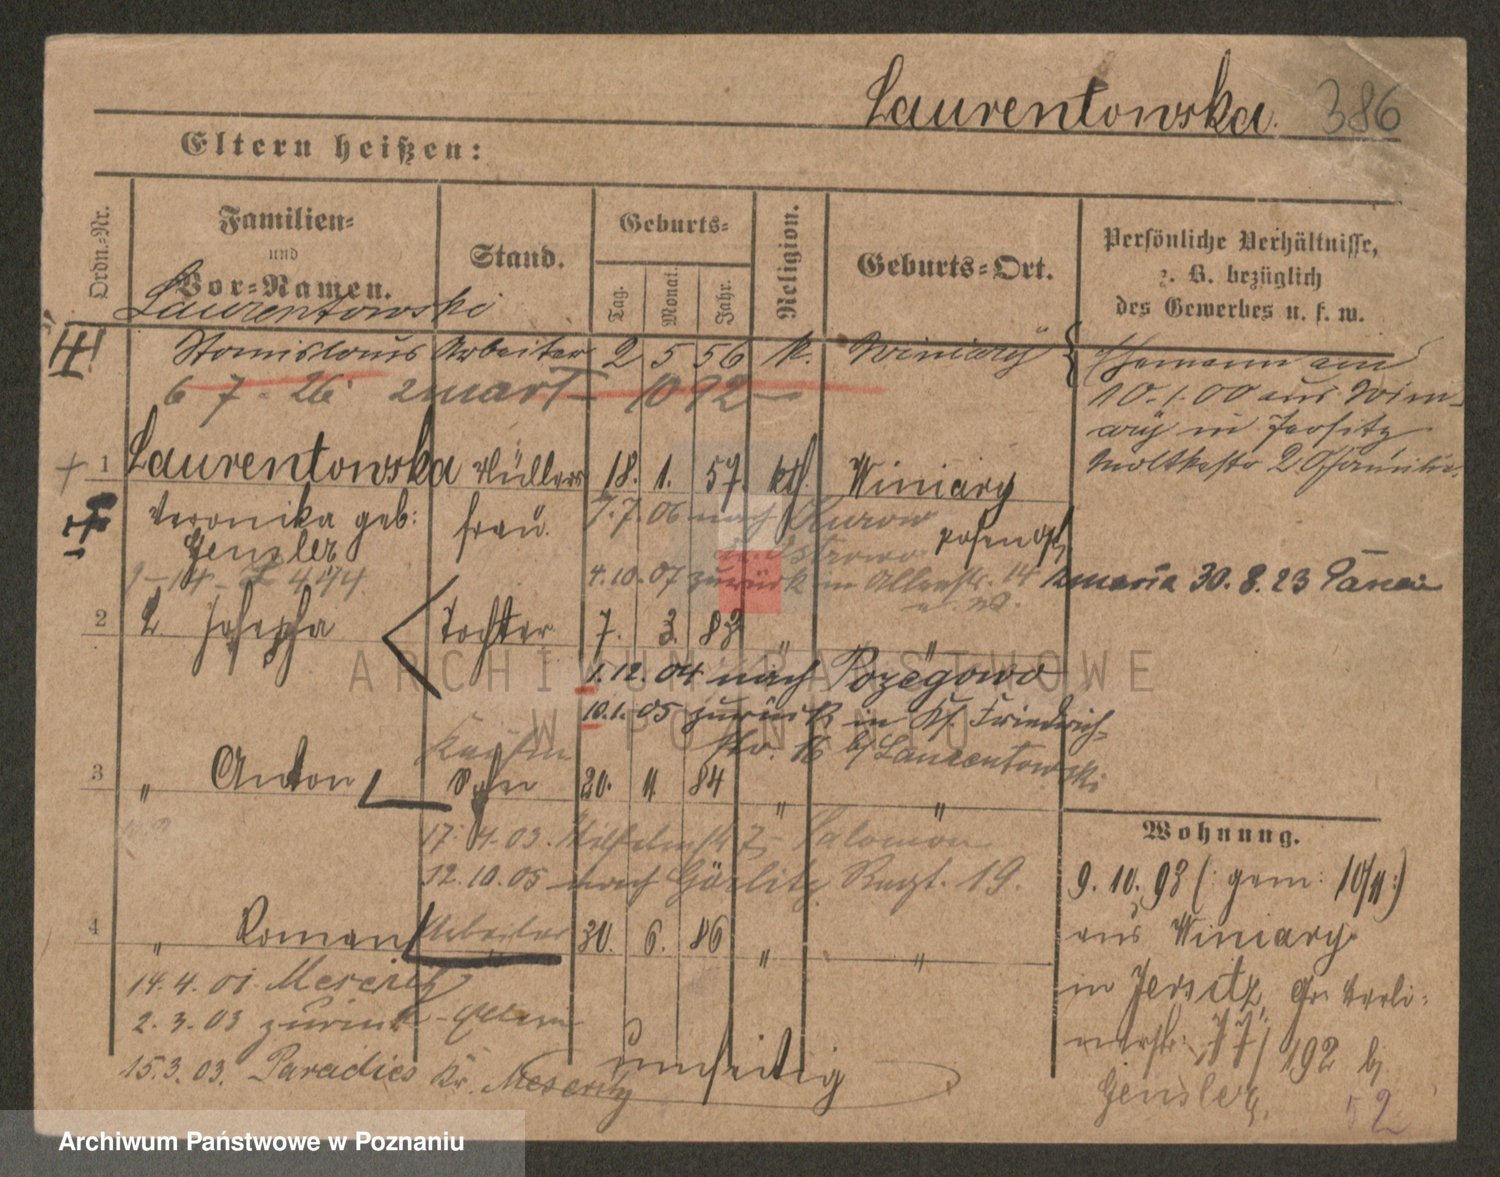 Laurentowska. 386
Eltern heißen:
Ordn.-Nr.
Familien-
und
Vor-Namen.
Stand.
Geburts-
Tag.
Monat.
Jahr.
Religion.
Geburts-Ort.
Persönliche Verhältnisse,
z. B. bezüglich
des Gewerbes u. s. w.
Laurentowski
Stanislaus Arbeiter 2 5 56 k. Winiary
6 7. 26 zmarł 1092
Ehemann am
10.1.00 aus Win-
ary in Jersitz
Moltkestr 2
1 Laurentowska Müllers 18. 1. 57. kth Winiary
Veronika geb: frau.
Gensler
7.7.06 nach Kurow
Posen Ost
4.10.07 zurück in 14
zmarła 30.8.23
2 L. Josepha Tochter 7. 3. 83 " "
1.12.04 nach Pozegowo
10.1.05 zurück in Kf. Friedrich-
str. 16 b/ Laurentowski
3 " Anton Sohn 20. 11. 84 " "
17.4.03. 7 Salomon
12.10.05 nach Görlitz Regt. 19.
4 " Roman Arbeiter 30. 6. 86 " "
14.4.01. Meseritz
2.3.03 zurück - Eltern
15.3.03. Paradies Kr. Meseritz
umseitig
Wohnung.
9.10.93 (: gem: 10/11:)
aus Winiary
in Jersitz, Gr. Berli-
nerstr. 77/192 b/
Gensler.
52
ARCHIWUM PAŃSTWOWE
W POZNANIU
Archiwum Państwowe w Poznaniu